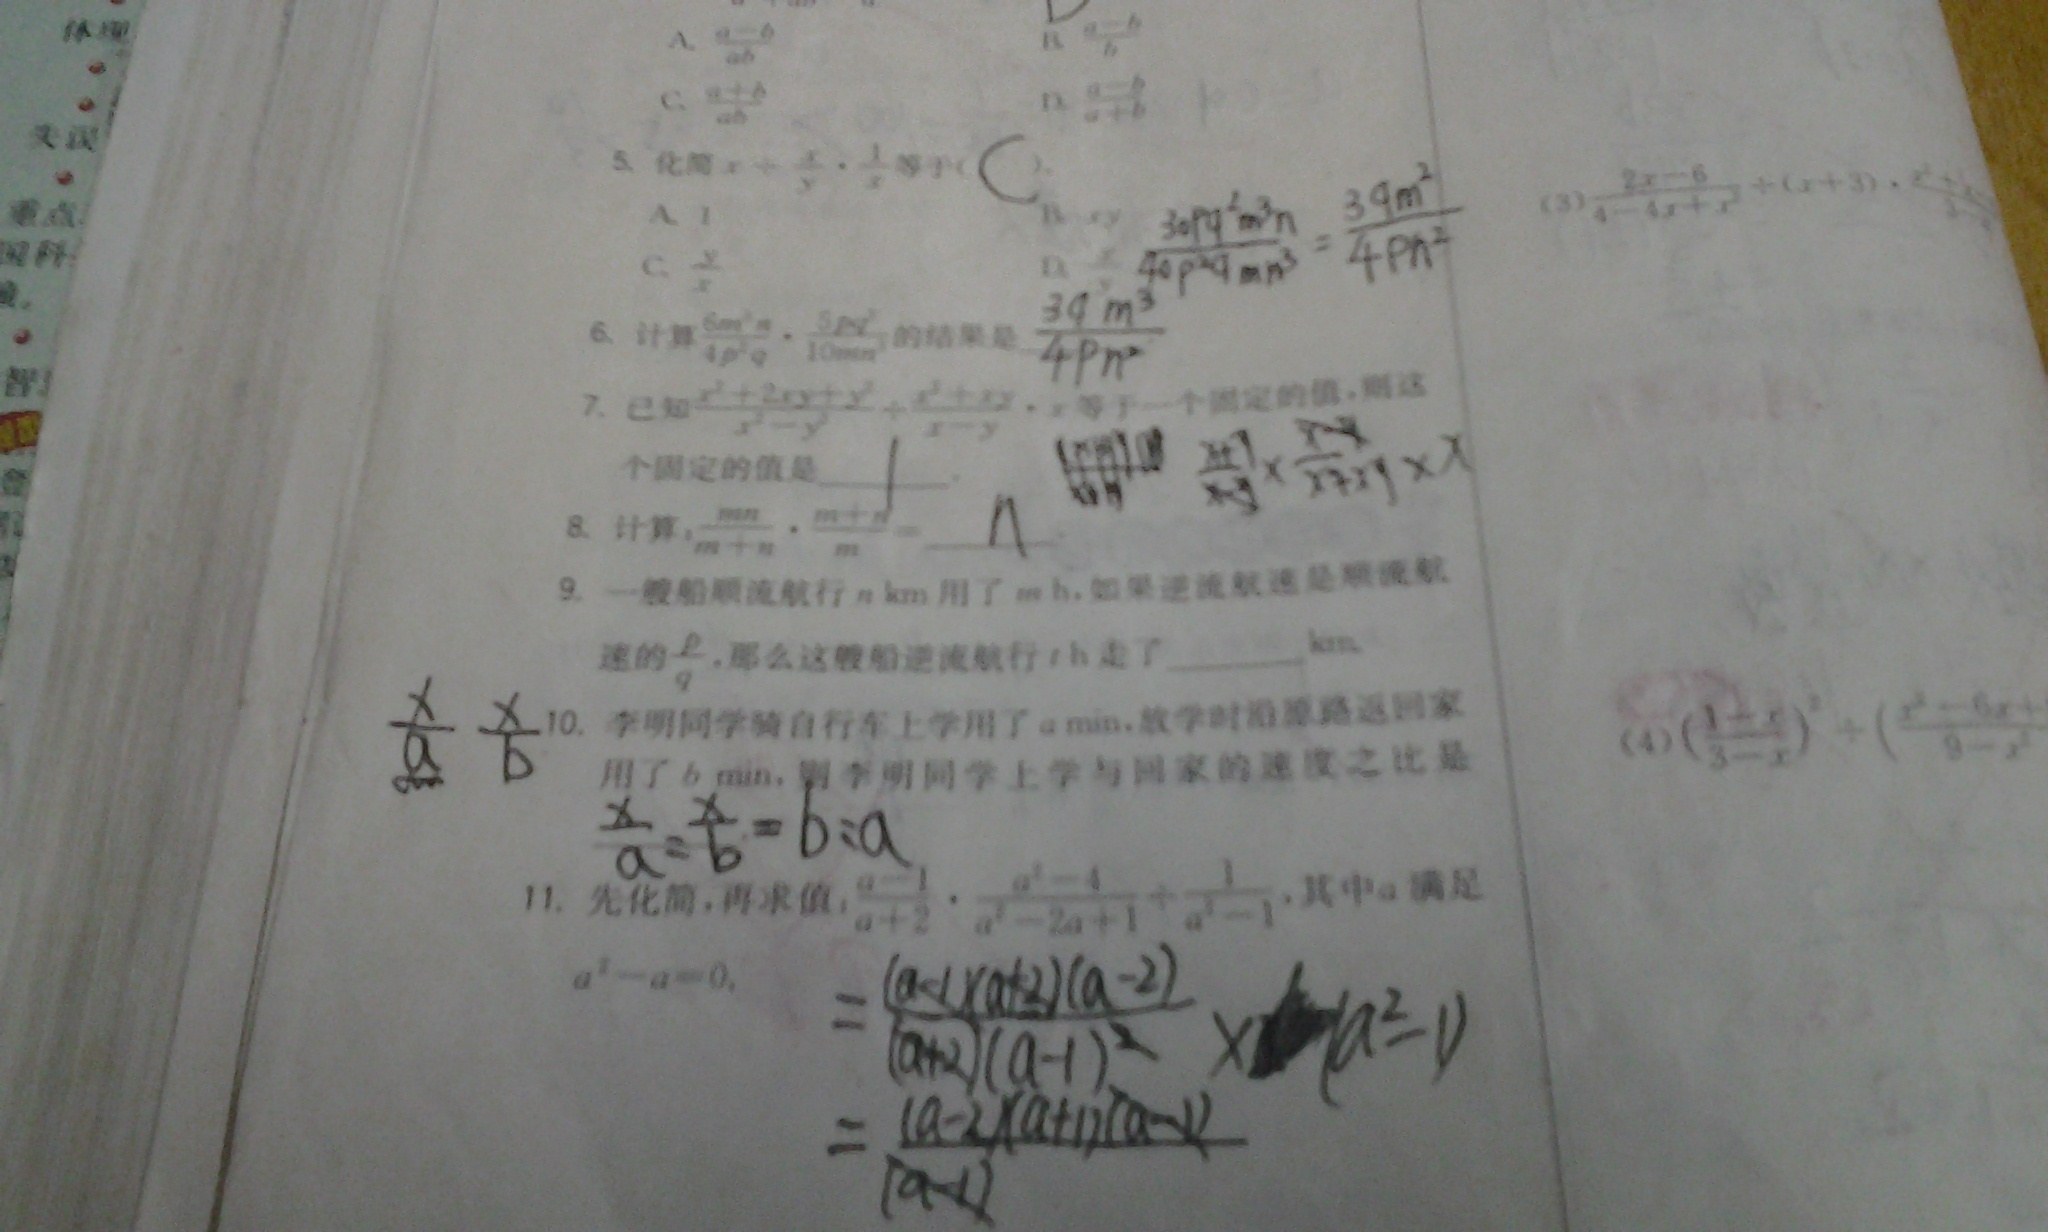 A. \frac{a-b}{ab} B. \frac{a-b}{b}
C. \frac{a+b}{ab} D. \frac{a-b}{a+b}
5. 化简 x ÷ \frac{x}{y} · \frac{1}{x} 等于( C ).
A. 1 B. xy
C. \frac{y}{x} D. \frac{x}{y}
\frac{30pq^2m^3n}{40p^2qmn^3} = \frac{3qm^2}{4pn^2}
6. 计算 \frac{6m^3n}{4p^2q} · \frac{5pq^2}{10mn^3} 的结果是 \frac{3qm^3}{4pn^2}
7. 已知 \frac{x^2+2xy+y^2}{x^2-y^2} ÷ \frac{x^2+xy}{x-y} · x 等于一个固定的值,则这
个固定的值是 1 .
\frac{x+y}{x-y} × \frac{x-y}{x^2+xy} × x
8. 计算: \frac{mn}{m+n} · \frac{m+n}{m} = n
9. 一艘船顺流航行 n km 用了 m h,如果逆流航速是顺流航
速的 \frac{p}{q},那么这艘船逆流航行 t h 走了 km.
\frac{x}{a} \frac{x}{b}
10. 李明同学骑自行车上学用了 a min,放学时沿原路返回家
用了 b min,则李明同学上学与回家的速度之比是
\frac{x}{a} = \frac{x}{b} = b:a
11. 先化简,再求值: \frac{a-1}{a+2} · \frac{a^2-4}{a^2-2a+1} ÷ \frac{1}{a^2-1},其中 a 满足
a^2-a=0.
= \frac{(a-1)(a+2)(a-2)}{(a+2)(a-1)^2} × (a^2-1)
= \frac{(a-2)(a+1)(a-1)}{(a-1)}
(3) \frac{2x-6}{4-4x+x^2} ÷ (x+3) ·
(4) (\frac{1-x}{3-x})^2 ÷ (
体现
失误
重点